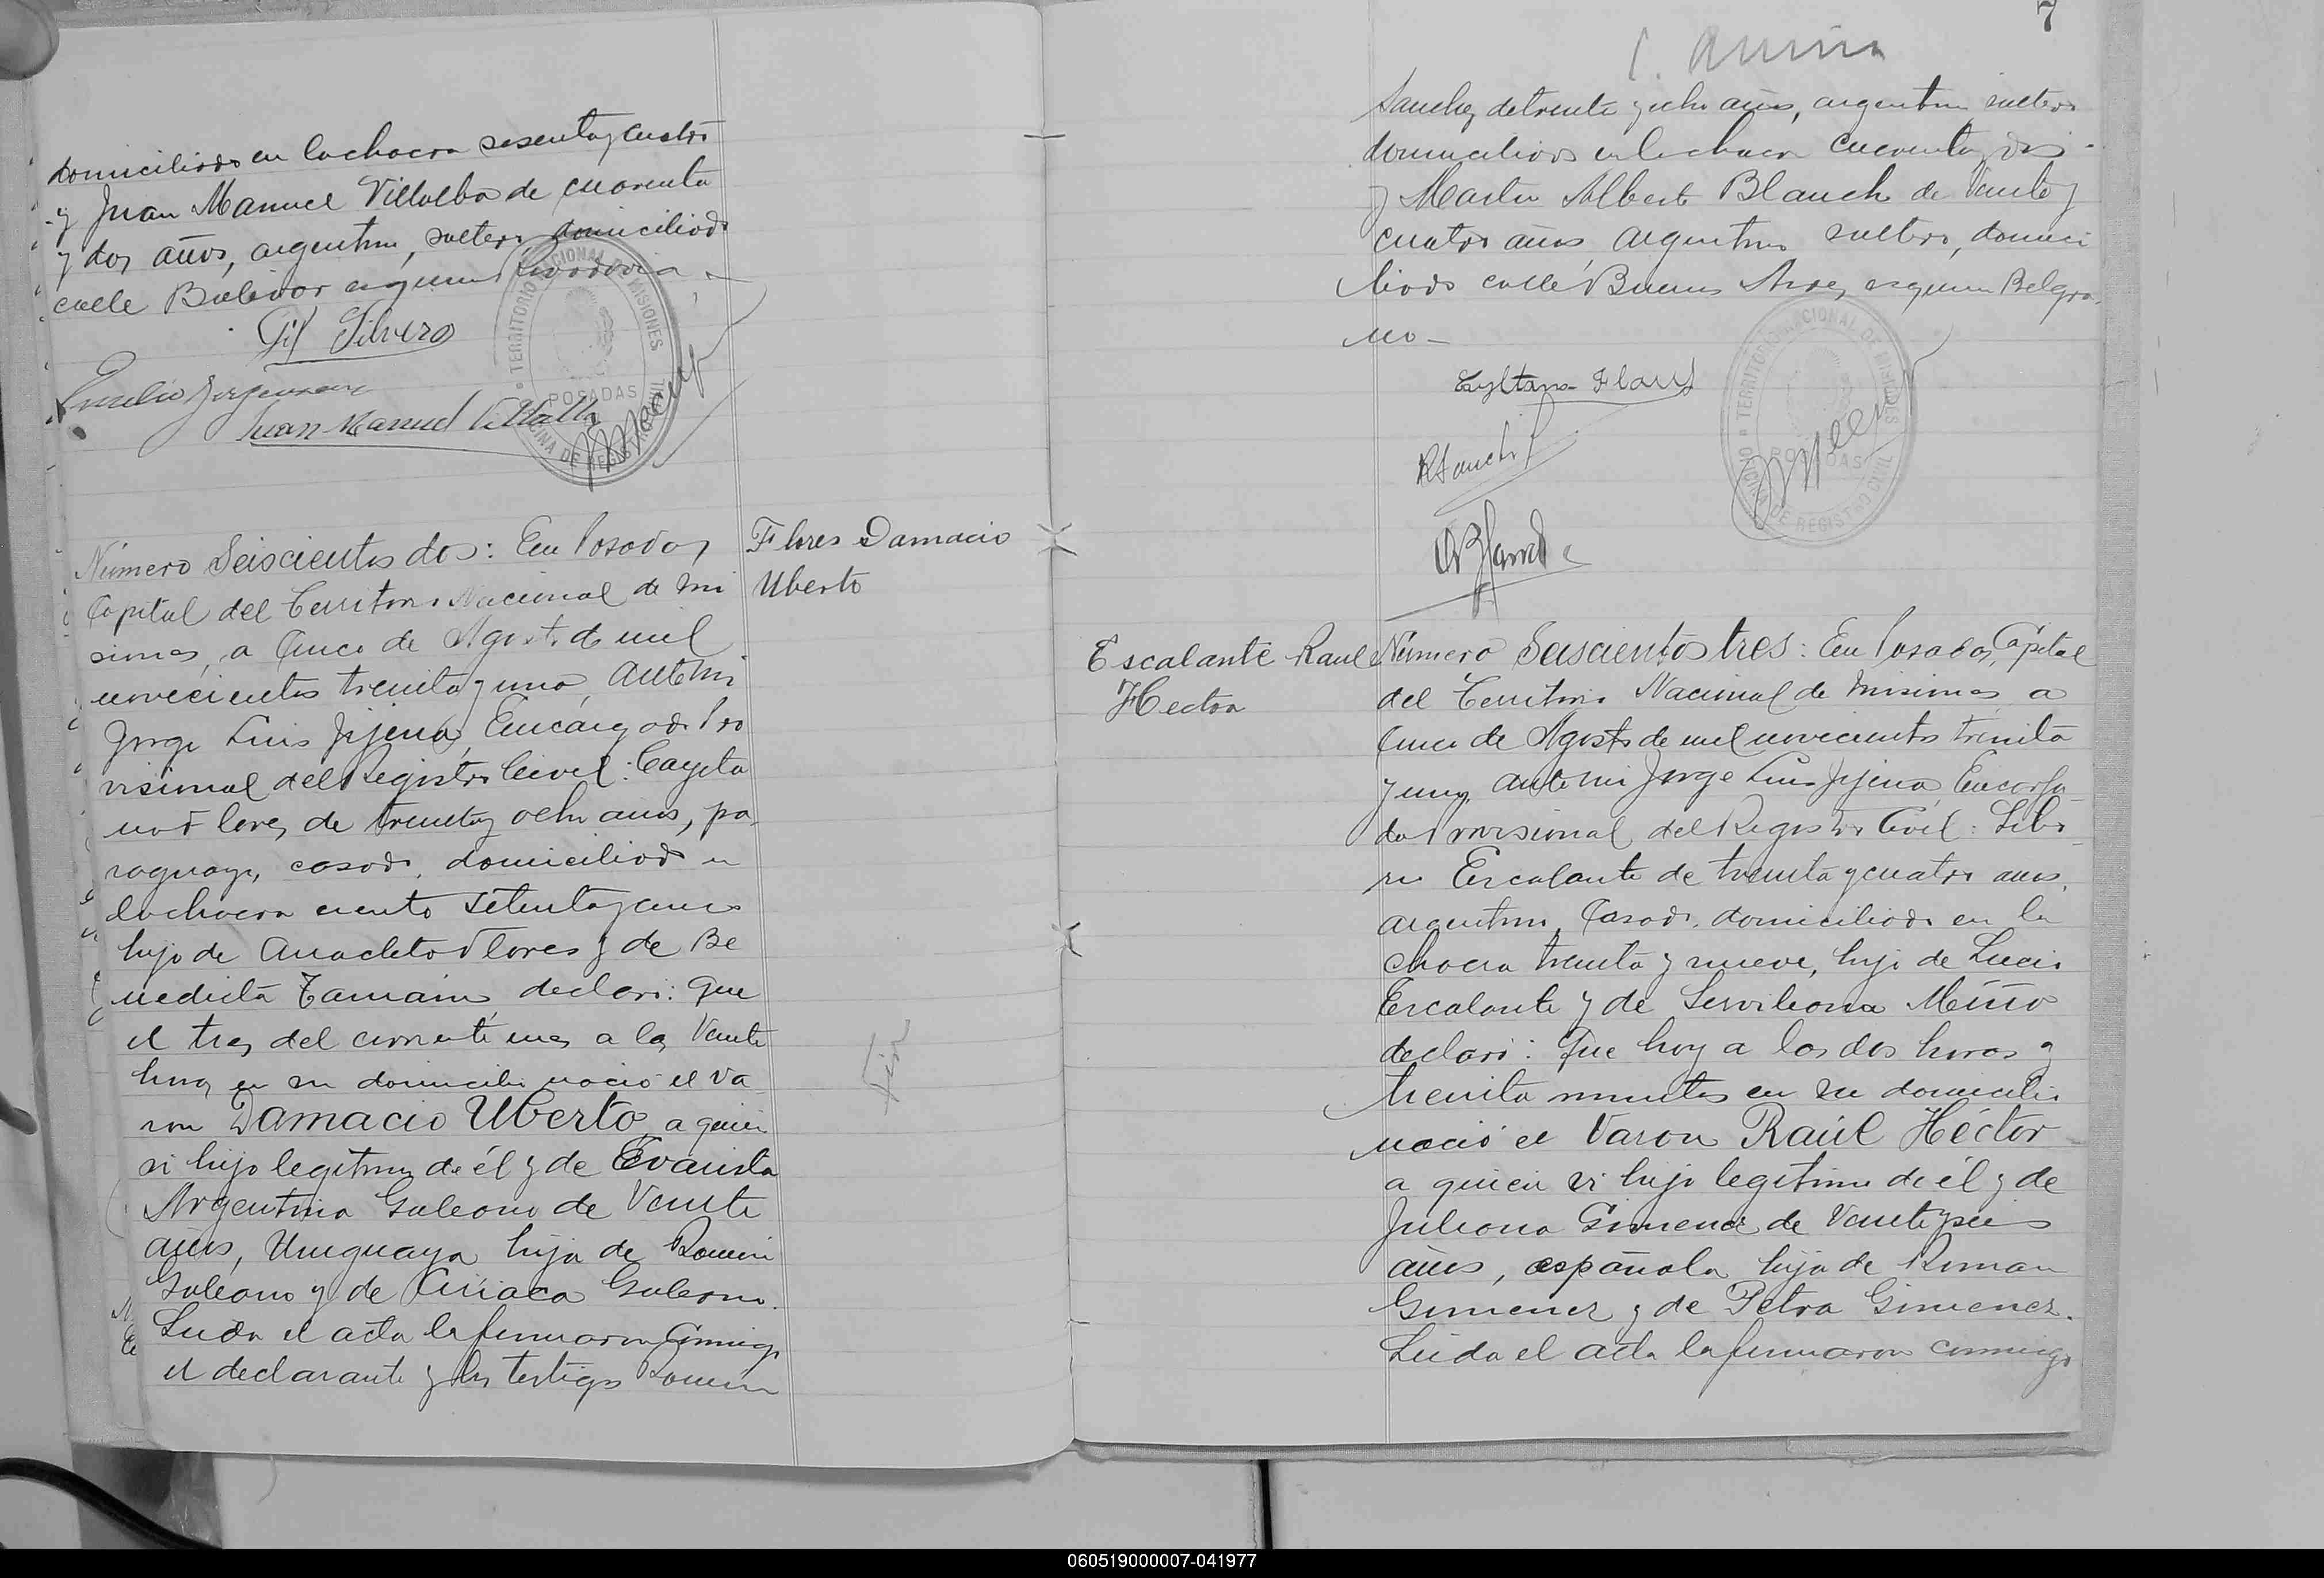 domiciliado en la chacra sesenta y cuatro
y Juan Manuel Villalba de cuarenta
y dos años, argentino, soltero, domiciliado
calle Bolivar esquina Rivadavia.
Gil Silvero
Emilio Jorgensen
Juan Manuel Villalba
TERRITORIO NACIONAL DE MISIONES
POSADAS
OFICINA DE REGISTRO CIVIL
Número Seiscientos dos: En Posadas
Capital del Territorio Nacional de Mi
siones, a Cinco de Agosto de mil
novecientos treinta y uno, ante mi
Jorge Luis Jijena, Encargado Pro
visional del Registro Civil: Cayeta
no Flores, de treinta y ocho años, pa
raguayo, casado, domiciliado en
la chacra ciento setenta y cinco
hijo de Anacleto Flores y de Be
nedicta declaró: Que
el tres del corriente mes a las Veinte
horas en su domicilio nació el va
ron Damacio Uberto a quien
vi hijo legitimo de él y de Evarista
Argentina Galeano de Veinte
años, Uruguaya hija de Roman
Galeano y de Ciriaca Galeano.
Leida el acta la firmaron conmigo
el declarante y los testigos Ramon
Flores Damacio
Uberto
7
Sanchez de treinta y ocho años, argentino soltero
domiciliado en la chacra cincuenta y dos
y Martin Alberto Blanch de Veinte y
cuatro años argentino soltero, domici
liado calle Buenos Aires esquina Belgra
no
Flores
RSanchez
TERRITORIO NACIONAL DE MISIONES
POSADAS
OFICINA DE REGISTRO CIVIL
Escalante Raul
Hector
Número Seiscientos tres: En Posadas, Capital
del Territorio Nacional de Misiones a
Cinco de Agosto de mil novecientos treinta
y uno, ante mi Jorge Luis Jijena, Encarga
do Provisional del Registro Civil: Libo
rio Escalante de treinta y cuatro años,
argentino, Casado, domiciliado en la
chacra treinta y nueve, hijo de Lucio
Escalante y de Serviliana Miño
declaró: Que hoy a las dos horas y
treinta minutos en su domicilio
nació el Varon Raúl Héctor
a quien vi hijo legitimo de él y de
Juliana Gimenez de Veinte y seis
años, española hija de Roman
Gimenez y de Petra Gimenez.
Leida el acta la firmaron conmigo
060519000007-041977